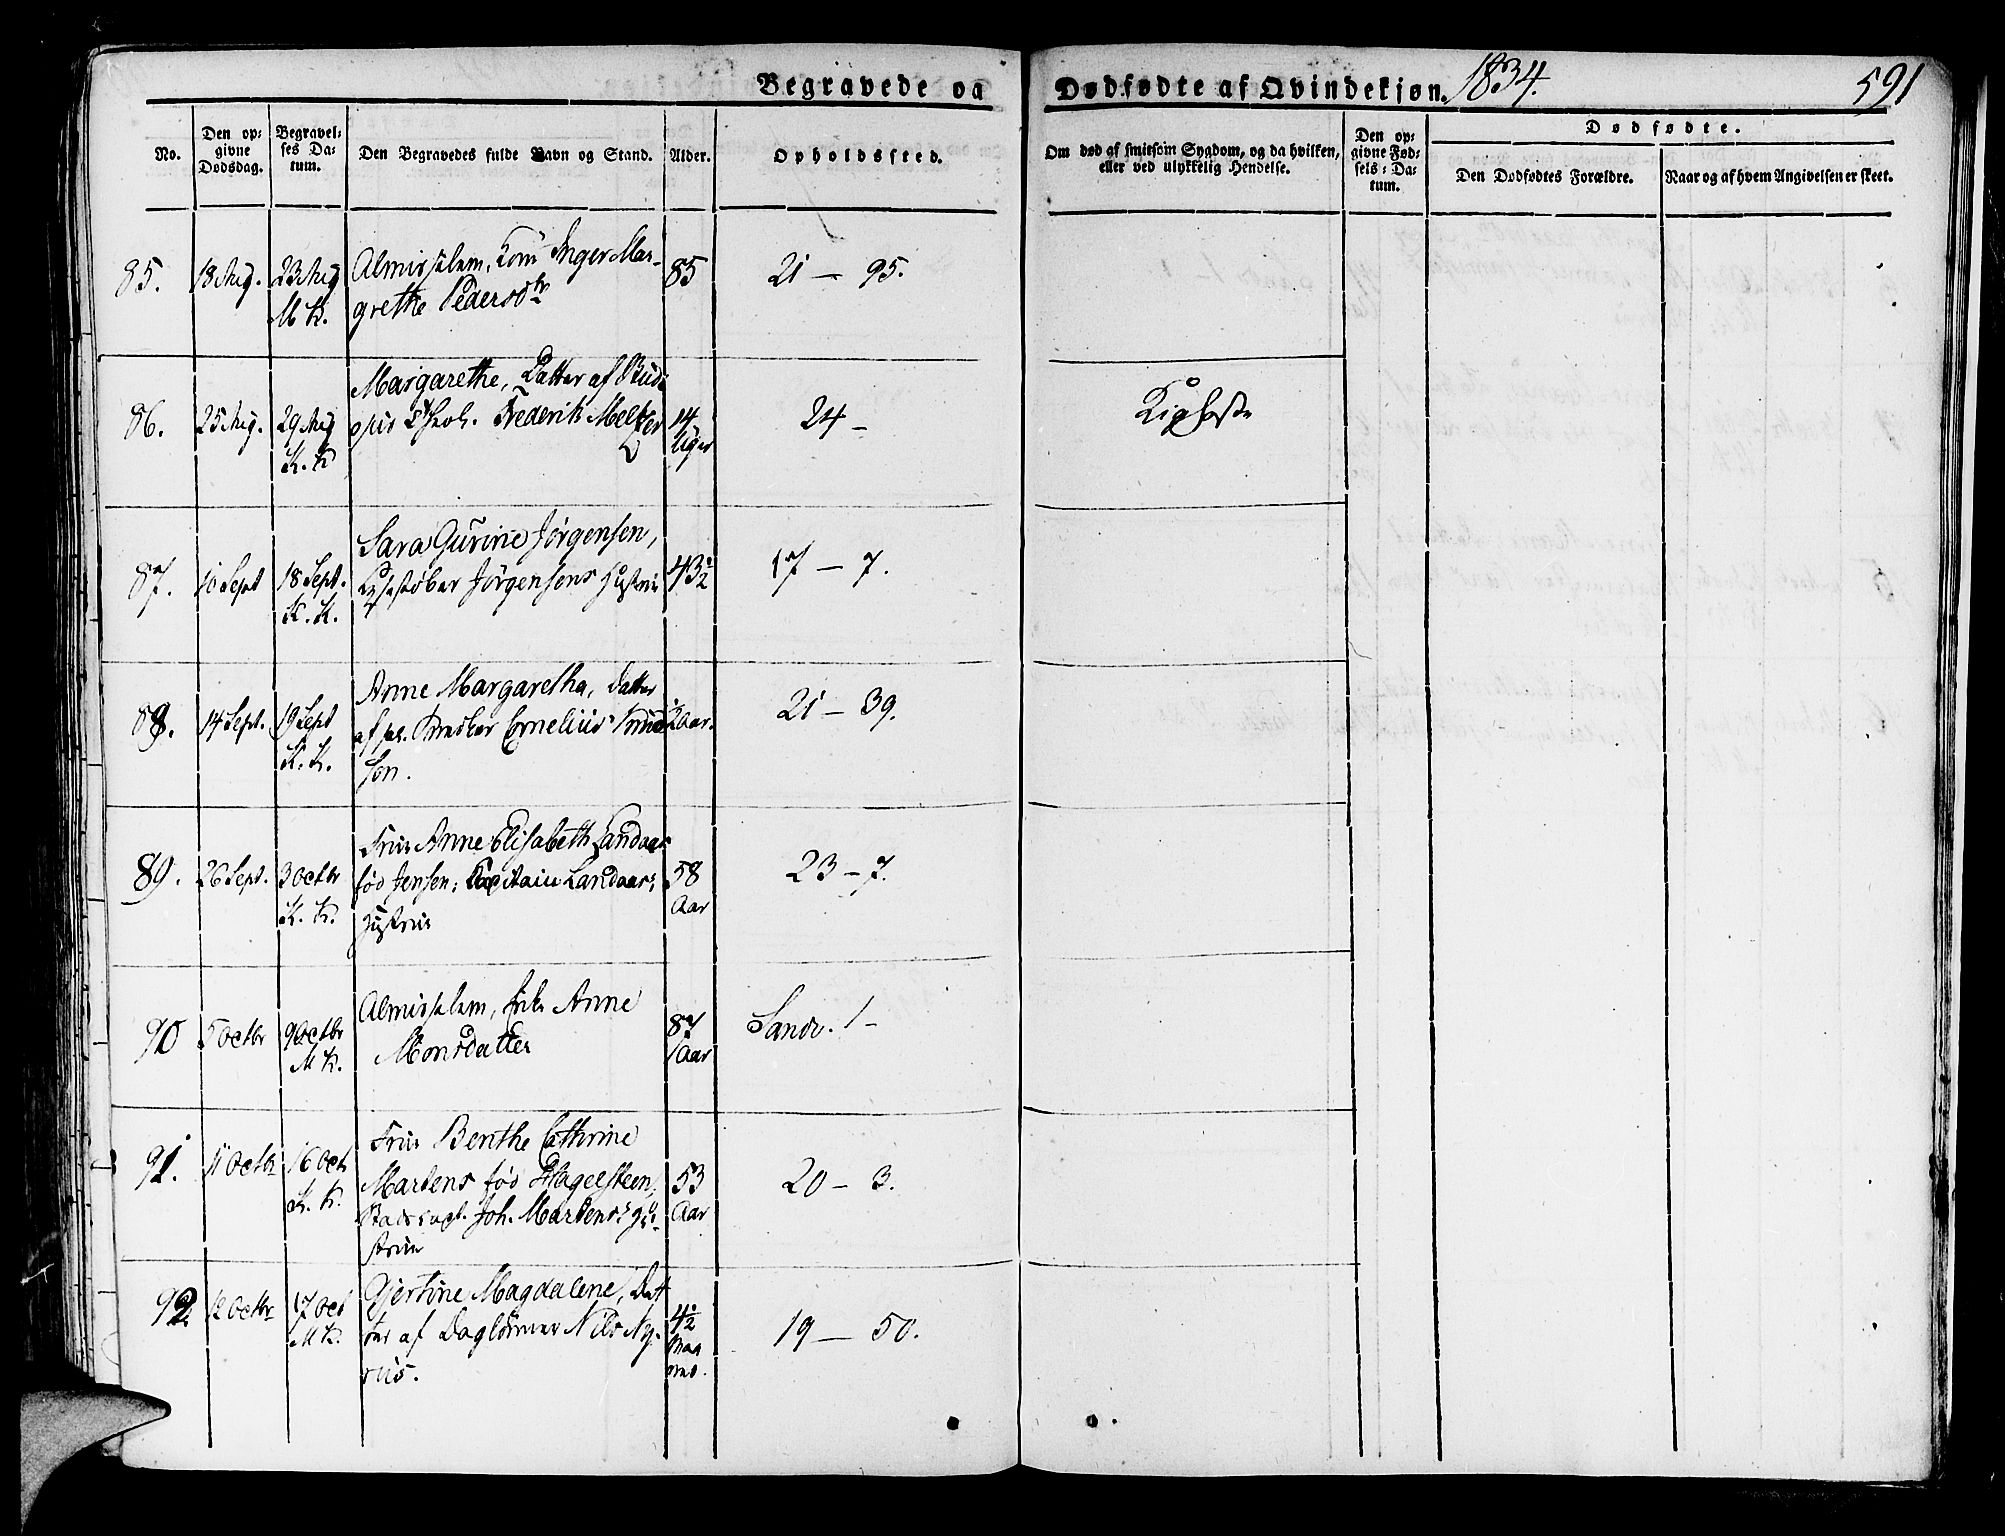 Begravede og Dødfødte af Qvindekjøn. 1834. 591
No.
Den opgivne Dødsdag.
Begravelses Datum.
Den Begravedes fulde Navn og Stand.
Alder.
Opholdssted.
Om død af smitsom Sygdom, og da hvilken, eller ved ulykkelig Hendelse.
Den opgivne Fødsels-Datum.
Dødfødte.
Den Dødfødtes Forældre.
Naar og af hvem Angivelsen er skeet.
85. 18 Aug. 23 Aug M K.
Almisselem, Inger Mar-
grethe Pedersdtr
85
21 – 95.
86. 25 Aug. 29 Aug K. K
Margarethe, Datter af
Frederik Meltzer
14 Uger
24 –
Kighoste
87. 10 Sept 18 Sept. K. K.
Sara Gurine Jørgensen,
Jørgensens Hustrue
43½
17 – 7.
88. 14 Sept. 19 Sept K. K.
Anne Margaretha, Datter
af Cornelius Knud
sen.
2 Aar.
21 – 39.
89. 26 Sept. 3 Octbr K. K.
Frue Anne Elisabeth Landaas
fød Jensen, Capitain Landaas's
Hustrue
58 Aar
23 – 7.
90 5 Octbr 9 Octbr M K.
Almisselem, Enke Anne
Monsdatter
87 Aar
Sandv. 1 –
91. 11 Octbr 16 Oct K. K.
Frue Benthe Cathrine
Martens fød Hagelsteen,
Joh. Martens's Hu-
strue
53 Aar
20 – 3.
92 12 Octbr 17 Oct M K.
Gjertine Magdalene, Dat
ter af Daglønner Nils
4½ Maaned.
19 – 50.